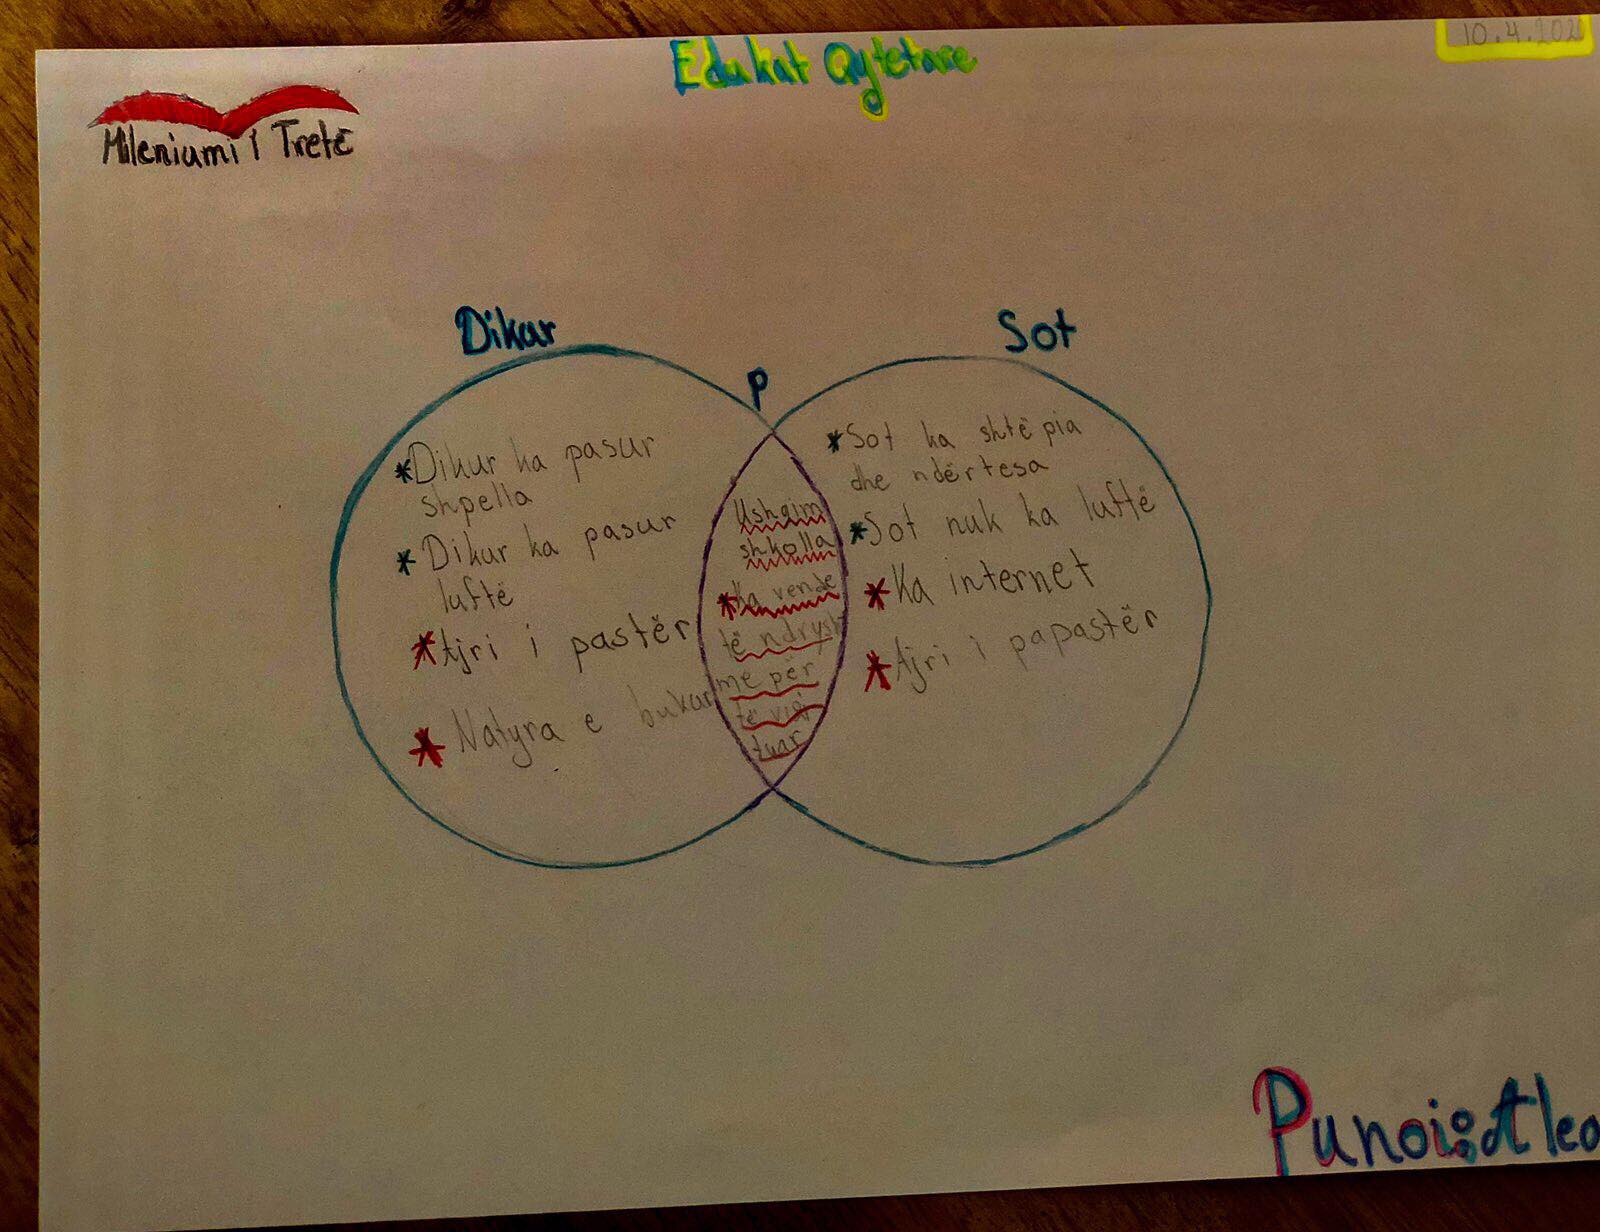 Edukat Qytetare
10.4.202
Mileniumi i Tretë
Dikur
Sot
P
*Dikur ka pasur
shpella
*Dikur ka pasur
luftë
*Ajri i pastër
*Natyra e bukur
Ushqim
shkolla
*Ka vende
të ndrysh
me për
të vizi
tuar
*Sot ka shtëpia
dhe ndërtesa
*Sot nuk ka luftë
*Ka internet
*Ajri i papastër
Punoi: Alea